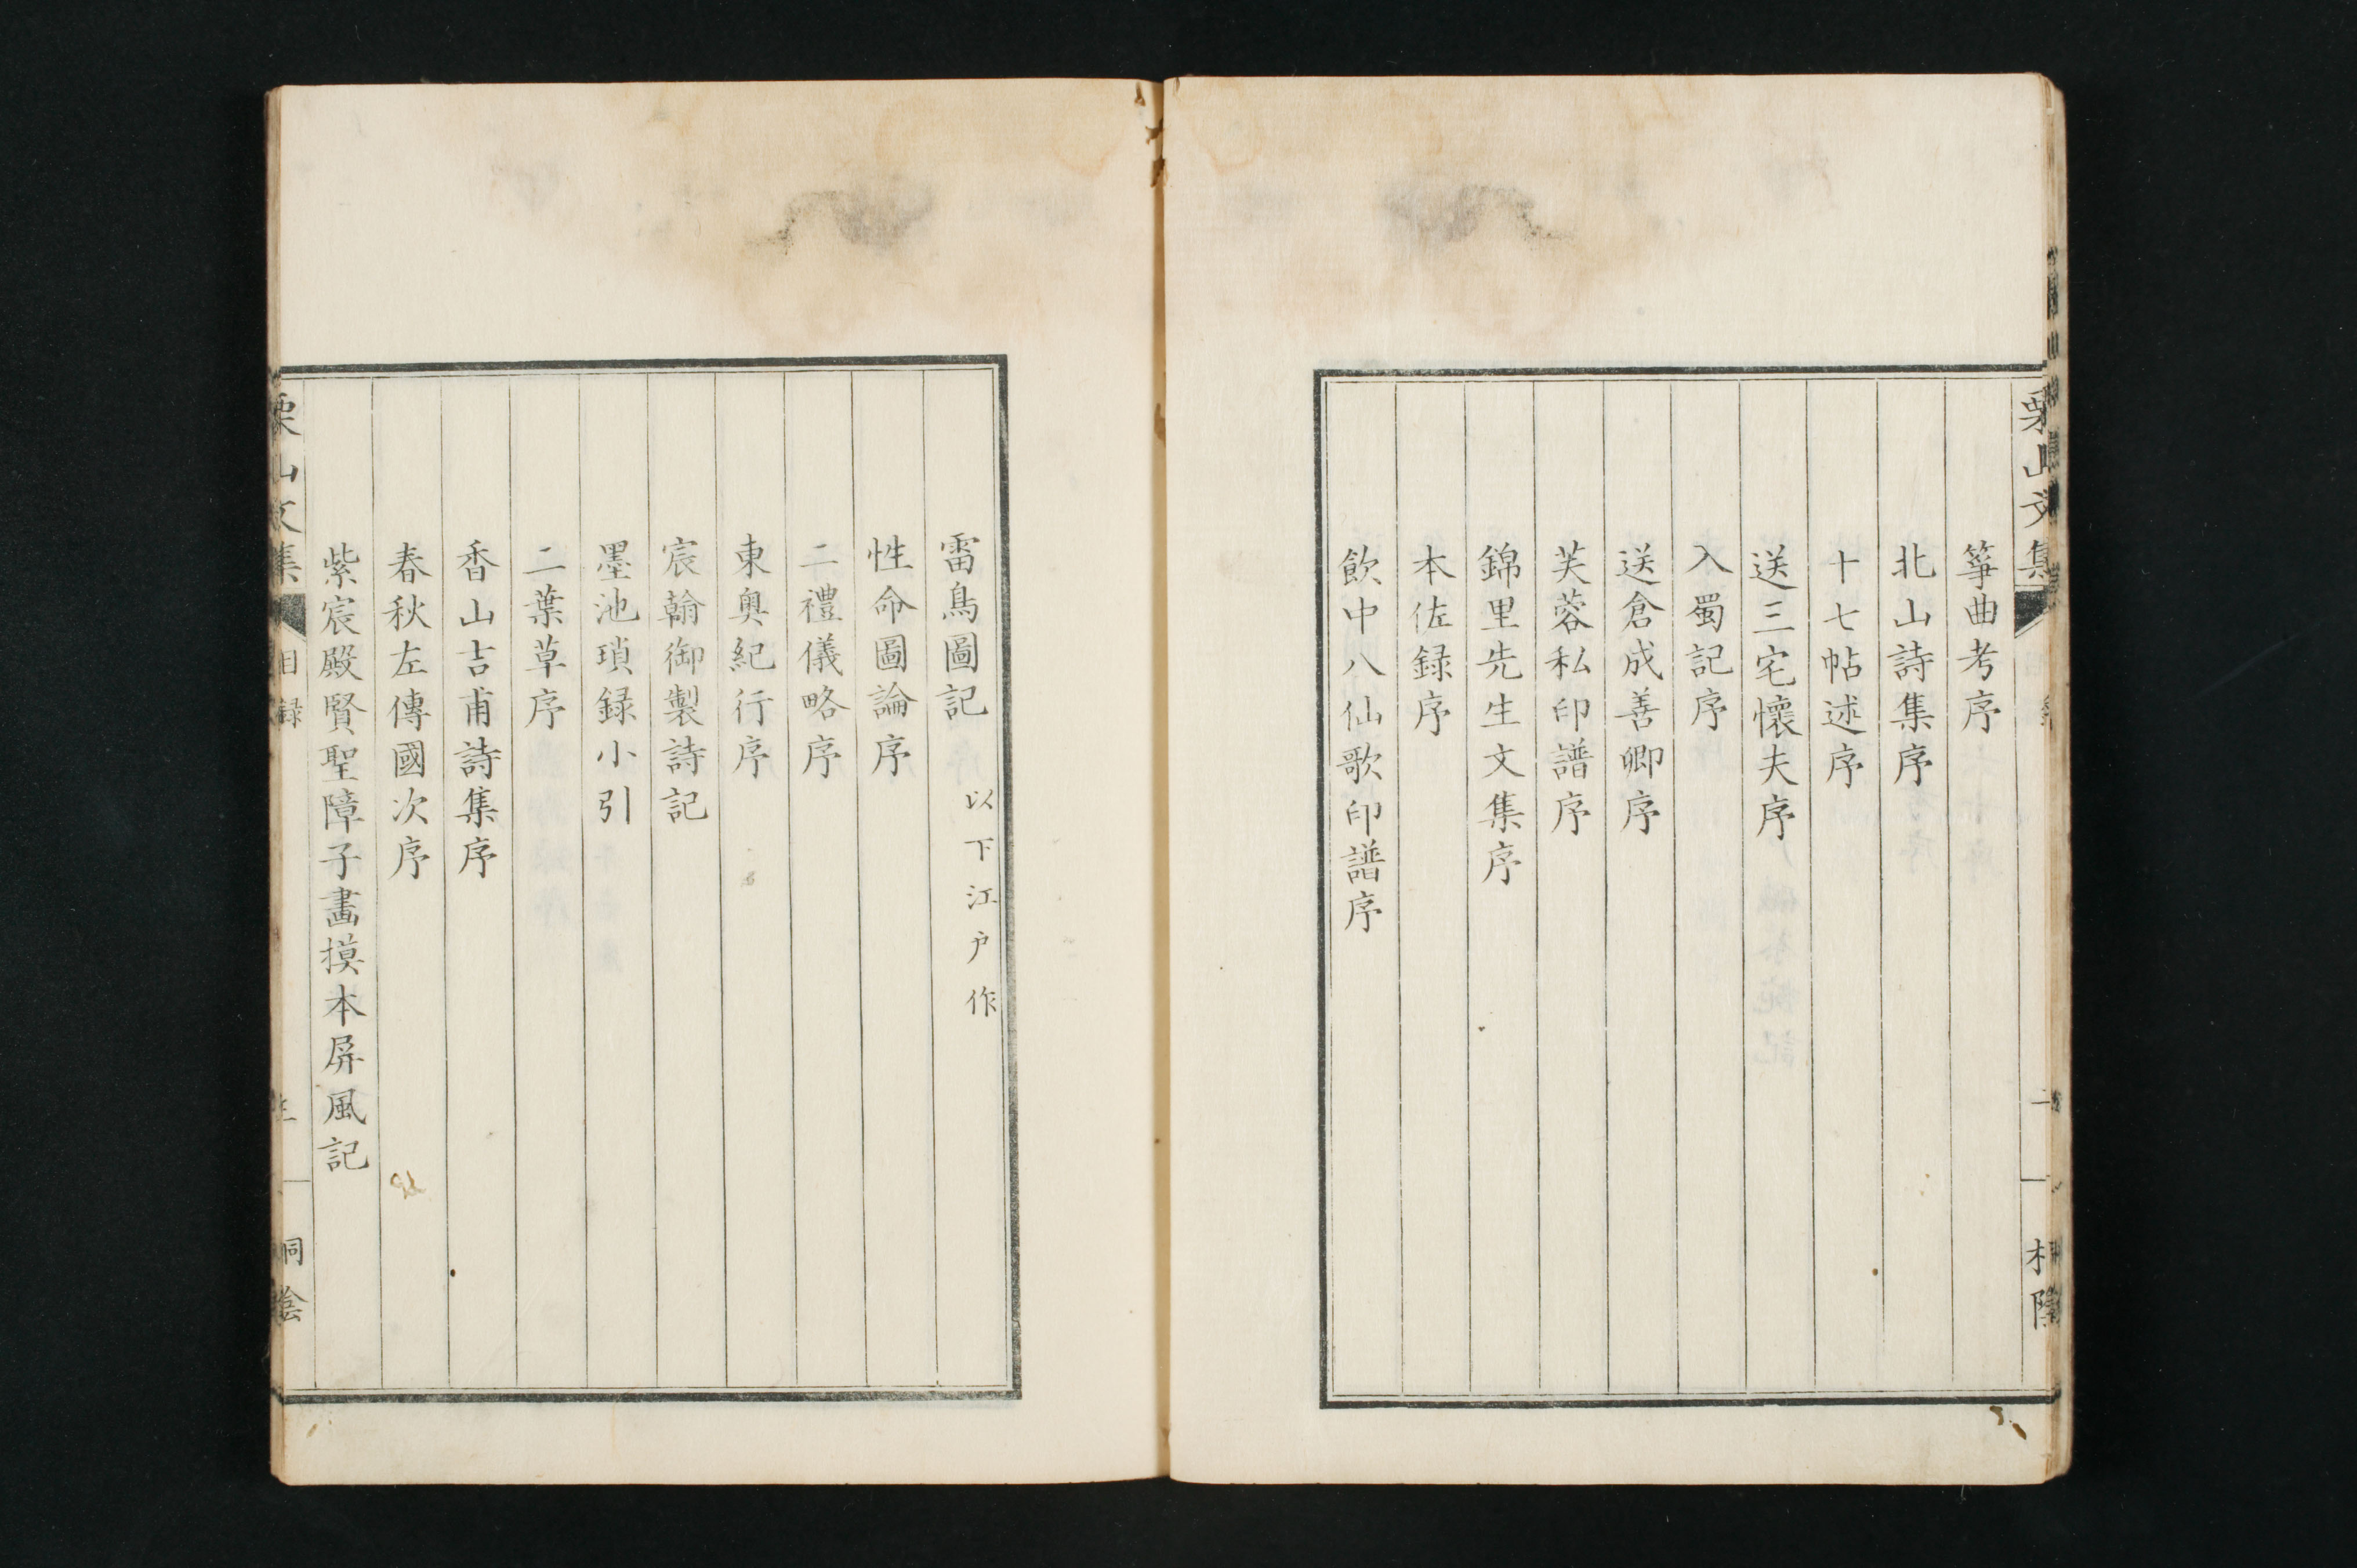 栗山文集
箏曲考序
北山詩集序
十七帖述序
送三宅懷夫序
入蜀記序
送倉成善卿序
芙蓉私印譜序
錦里先生文集序
本佐録序
飲中八仙歌印譜序
雷鳥圖記 以下江户作
性命圖論序
二禮儀略序
東奥紀行序
宸翰御製詩記
墨池瑣録小引
二葉草序
香山吉甫詩集序
春秋左傳國次序
紫宸殿賢聖障子畫摸本屏風記
栗山文集 目録 桐陰